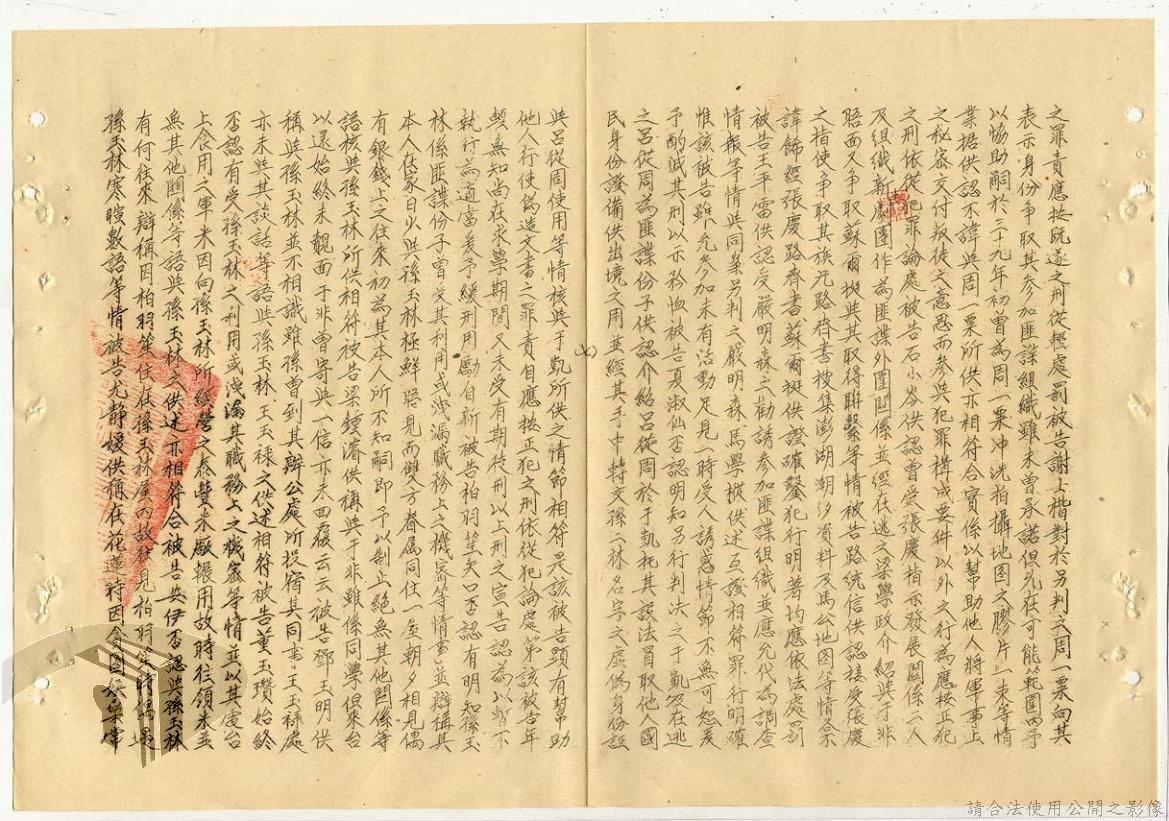 之罪責應按既遂之刑從輕處罰被告謝士楷對於另判之周一粟向其
表示身份爭取其參加匪諜組織雖未曾承諾但允在可能範圍內予
以協助嗣於三十九年初曾為周一粟沖洗拍攝地图之膠片一束等情
業據供認不諱與周一粟所供亦相符合實係以幫助他人將軍事上
之秘密交付叛徒之意思而參與犯罪構成要件以外之行為應按正犯
之刑依從犯罪論處被告石小岑供認曾受張慶指示發展關係二人
及組織新劇團作為匪諜外圍関係並經在逃之梁學政介紹與于非
晤面又爭取蘇爾挺與其取得聯繫等情被告路統信供認接受張慶
之指使爭取其族兄路齊書搜集澎湖潮汐資料及馬公地图等情分別
諱飾經張慶路齊書蘇爾挺供證確鑿犯行明著均應依法處罰
被告王平雷供認受嚴明森之勸誘參加匪諜組織並應允代為調查
情報等情與同案另判之嚴明森馬學樅供述互證相符罪行明確
惟該被告雖允參加未有活動足見一時受人誘惑情節不無可恕爰
予酌減其刑以示矜恤被告夏淑仙否認明知另行判決之于凱及在逃
之呂從周為匪諜份子供認介紹呂從周於于凱托其設法冒取他人國
民身份證備供出境之用並經其手中轉交孫二林名字之虛偽身份証
(七)
與呂從周使用等情核與于凱所供之情節相符是該被告顯有幫助
他人行使偽造文書之罪責自應按正犯之刑依從犯論處第該被告年
幼無知尚在求學期間又未受有期徒刑以上刑之宣告認為以暫不
執行為適當蓦予緩刑用勵自新被告柏羽笙矢口否認有明知孫玉
林係匪諜份子曾受其利用或洩漏職務上之機密等情事並辯稱其
本人在家日少與孫玉林極鮮晤見而雙方眷属同住一屋朝夕相見偶
有銀錢上之往來初為其本人所不知嗣即予以制止絕無其他関係等
語核與孫玉林所供相符被告梁鍾濬供稱與于非雖係同學但來台
以還始終未覯面于非曾寄與一信亦未回覆云云被告鄧玉明供
稱與孫玉林並不相識雖孫曾到其辦公處所投宿其同事王玉祿處
亦未與其談話等語與孫玉林、王玉祿之供述相符被告董玉瓚始終
否認有受孫玉林之利用或洩漏其職務上之機密等情並以其虔台
上食用之軍米因向孫玉林所經營之泰豐米廠輾用故時往領米並
無其他関係等語與孫玉林之供述亦相符合被告與伊否認與孫玉林
有何往來辯稱因柏羽笙住在孫玉林屋內故往見柏羽笙時偶遇
孫玉林寒暄數語等情被告尤靜媛供稱在花蓮時因合图娛樂常
請合法使用公開之影像